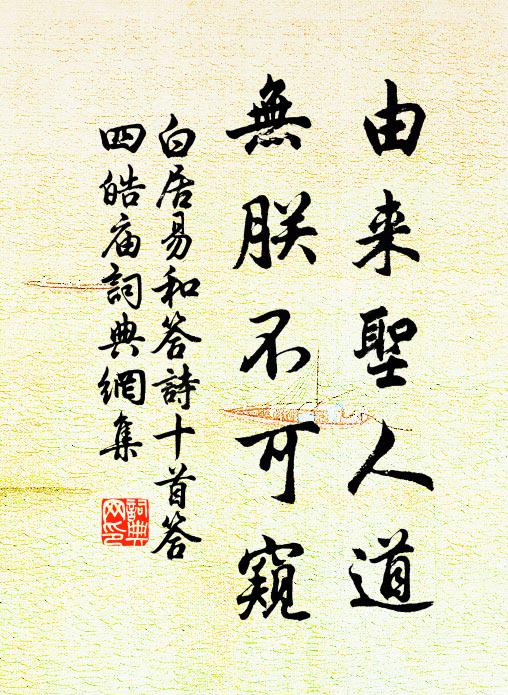 由来聖人道
無朕不可窺
白居易和答詩十首答
四皓庙詞典網集
詞典
网印